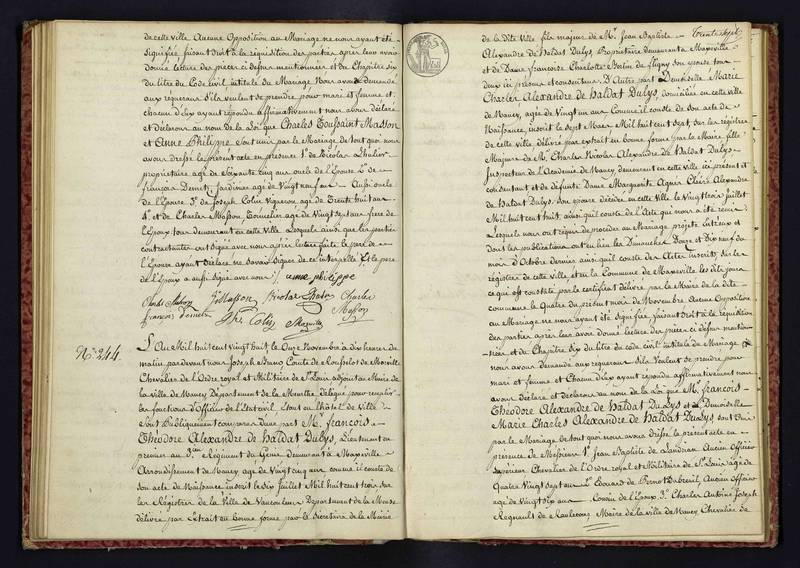 de cette ville Aucune Opposition au Mariage ne nous ayant été
signifiée, faisant droit à la réquisition des parties après leur avoir
donné lecture des pièces ci dessus mentionnées et du Chapitre six
du titre du Code civil intitulé du Mariage Nous avons demandé
aux requérans s'ils veulent se prendre pour mari et femme et
chacun d'eux ayant répondu affirmativement nous avons déclaré
et déclarons au nom de la Loi que Charles Toussaint Masson
et Anne Philippe sont unis par le Mariage de tout quoi nous
avons dressé le présent acte en présence 1° de Nicolas
propriétaire agé de soixante cinq ans oncle de l'Epouse 2° de
françois Jardinier agé de Vingt neuf ans Aussi oncle
de l'Epouse 3° de Joseph Colin Vigneron, agé de Trente huit ans
4° et de Charles Masson, Tonnelier agé de Vingt sept ans frère de
l'Epoux; tous demeurant en cette Ville Lesquels ainsi que les parties
contractantes ont signé avec nous après lecture faite le père de
l'Epouse ayant déclaré ne savoir signer de ce interpellé & le père
de l'Epoux a aussi signé avec nous anne philippe
Masson Nicolas Charles
françois Colin Masson
N° 244.
L'An Mil huit cent vingt huit le Onze Novembre à dix heures du
matin pardevant nous Joseph Bruno Comte de Rousselot de Morville
Chevalier de l'Ordre royal et Militaire de St Louis adjoint au Maire de
la ville de Nancy Département de la Meurthe Délégué pour remplir
les fonctions d'Officier de l'Etat civil, Étant en l'hôtel de Ville
Sont Publiquement comparus D'une part Mr. françois
Théodore Alexandre de Haldat Dulys, Lieutenant en
premier au 3eme Régiment du Génie demeurant à Maxéville
Arrondissement de Nancy, agé de Vingt cinq ans comme il conste de
son acte de Naissance inscrit le six Juillet Mil huit cent trois sur
les Régistres de la Ville de Vaucouleurs Département de la Meuse
délivré par Extrait en bonne forme par le Secrétaire de la Mairie
de la dite Ville fils majeur de Mr. Jean Baptiste
Alexandre de Haldat Dulys, Propriétaire demeurant à Maxéville
et de Dame francoise Charlotte de fligny son épouse tous
deux ici présens et consentans. D'Autre part Demoiselle Marie
Charles Alexandre de Haldat Dulys, domiciliée en cette ville
de Nancy, agée de Vingt un ans Comme il conste de son acte de
Naissance, inscrit le sept Mars Mil huit cent sept sur les régistres
de cette ville délivré par extrait en bonne forme par la Mairie fille
Majeure de M. Charles Nicolas Alexandre de Haldat Dulys
Inspecteur de l'Académie de Nancy demeurant en cette ville ici présent et
consentant et de défunte Dame Marguerite Agnès Claire Alexandre
de Haldat Dulys son épouse décédée en cette Ville le Vingt trois Juillet
Mil huit cent huit, ainsi qu'il conste de l'Acte qui nous a été remis
Lesquels nous ont requis de procéder au Mariage projeté entr'eux et
dont les publications ont eu lieu les Dimanches Douze et Dix neuf du
mois d'Octobre dernier ainsi qu'il conste des Actes inscrits sur les
régistres de cette Ville et en la Commune de Maxéville les dits jours
ce qui est constaté par le certificat délivré par le Maire de la dite
commune le Quatre du présent mois de Novembre. Aucune Opposition
au Mariage ne nous ayant été signifiée, faisant droit à la réquisition
des parties après leur avoir donné lecture des pièces ci dessus mention-
nées, et du Chapitre six du titre du code civil intitulé du Mariage
nous avons demandé aux requérans s'ils Veulent se prendre pour
mari et femme et Chacun d'eux ayant répondu affirmativement nous
avons déclaré et déclarons au nom de la Loi que Mr. francois
Théodore Alexandre de Haldat Du Lys et Demoiselle
Marie Charles Alexandre de Haldat DuLys sont Unis
par le Mariage de tout quoi nous avons dressé le présent acte en
présence de Messieurs 1° Jean Baptiste de Landrian Ancien Officier
supérieur Chevalier de l'Ordre royal et Militaire de St. Louis agé de
Quatre Vingt sept ans 2° Edouard de Pernot Dubreuil, Ancien Officier
agé de Vingt six ans Cousin de l'Epoux, 3° Charles Antoine Joseph
Regnault de Raulecourt, Maire de la ville de Nancy Chevalier de